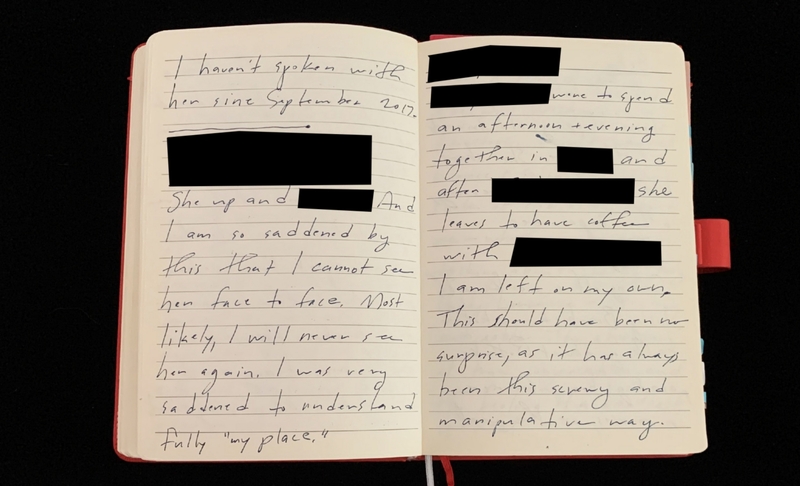 I haven't spoken with
her sine September 2017.
She up and And
I am so saddened by
this that I cannot see
her face to face. Most
likely, I will never see
her again. I was very
saddened to understand
fully "my place."
were to spend
an afternoon + evening
together in and
after she
leaves to have coffee
with
I am left on my own.
This should have been no
surprise, as it has always
been this screwy and
manipulative way.